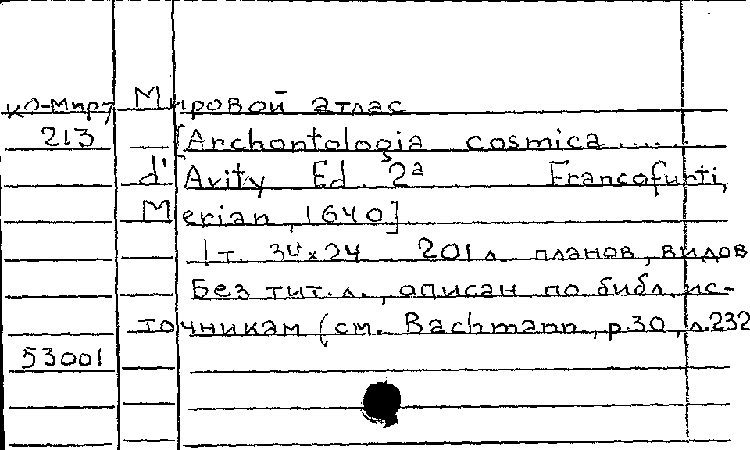 КО-Мир7 Мировой атлас
213 [Archontologia cosmica ....
d'Avity Ed. 2ª Francofurti,
Merian, 1640]
1 т. 34x24 201 л. планов, видов
Без тит. л., описан по библ. ис-
точникам (см. Bachmann, p.30, л.232
53001